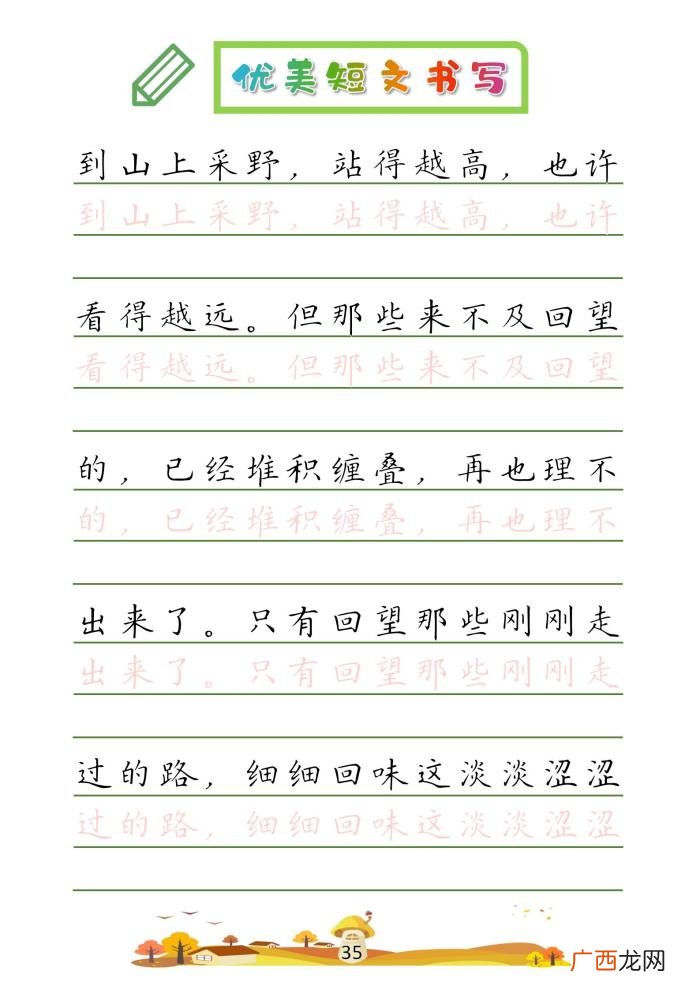 优美短文书写
到山上采野，站得越高，也许
到山上采野，站得越高，也许
看得越远。但那些来不及回望
看得越远。但那些来不及回望
的，已经堆积缠叠，再也理不
的，已经堆积缠叠，再也理不
出来了。只有回望那些刚刚走
出来了。只有回望那些刚刚走
过的路，细细回味这淡淡涩涩
过的路，细细回味这淡淡涩涩
35
广西龙网